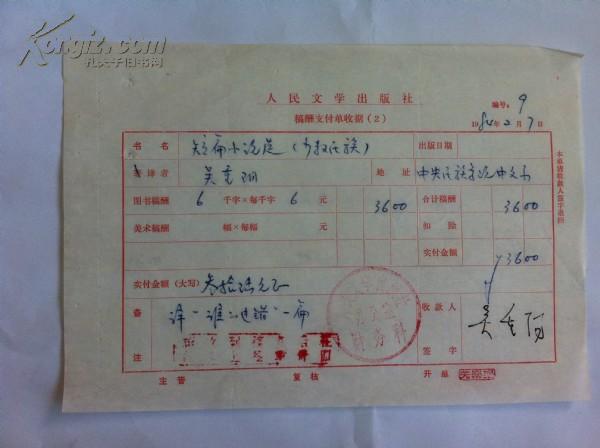 Kongfz.com
孔夫子旧书网
人民文学出版社
稿酬支付单收据(2)
编号:9
1984年2月7日
书名 短篇小说选(少数民族) 出版日期
著译者 吴重阳 地址 中央民族学院中文系
图书稿酬 6 千字×每千字 6 元 3600 合计稿酬 3600
美术稿酬 幅×每幅 元 扣除
实付金额 3600
实付金额(大写) 叁拾陆元正
备注 译"谁之过错"一篇
收款人签字 吴重阳
财务科
主管 复核 开单
本单请收款人签字退回